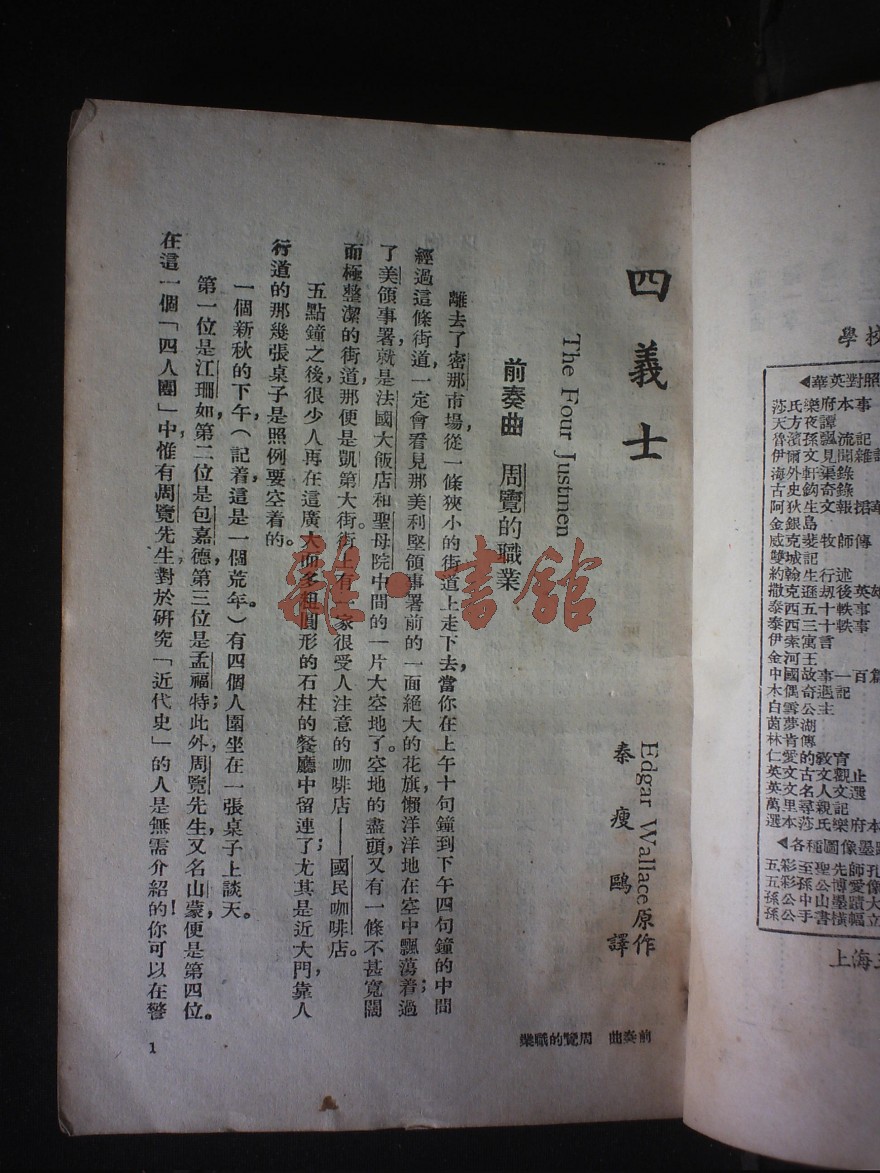 四義士
The Four Justmen
Edgar Wallace原作
秦瘦鷗譯
前奏曲 周覽的職業
離去了密那市場,從一條狹小的街道上走下去,當你在上午十句鐘到下午四句鐘的中間
經過這條街道,一定會看見那美利堅領事署前的一面絕大的花旗,懶洋洋地在空中飄蕩着;過
了美領事署,就是法國大飯店和聖母院中間的一片大空地了。空地的盡頭,又有一條不甚寬闊
而極整潔的街道,那便是凱第大街。街上有一家很受人注意的咖啡店——國民咖啡店。
五點鐘之後,很少人再在這廣大而多粗圓形的石柱的餐廳中留連了;尤其是近大門,靠人
行道的那幾張桌子是照例要空着的。
一個新秋的下午,(記着,這是一個荒年。)有四個人圍坐在一張桌子上談天。
第一位是江珊如,第二位是包嘉德,第三位是孟福特;此外,周覽先生,又名山蒙,便是第四位。
在這一個「四人團」中,惟有周覽先生對於研究「近代史」的人是無需介紹的!你可以在警
前奏曲 周覽的職業
1
學校
◀華英對照
莎氏樂府本事
天方夜譚
魯濱孫飄流記
伊爾文見聞雜記
海外軒渠錄
古史鉤奇錄
阿狄生文報捃華
金銀島
威克斐牧師傳
雙城記
約翰生行述
撒克遜刼後英雄
泰西五十軼事
泰西三十軼事
伊索寓言
金河王
中國故事一百篇
木偶奇遇記
白雲公主
茵夢湖
林肯傳
仁愛的教育
英文古文觀止
英文名人文選
萬里尋親記
選本莎氏樂府本
◀各種圖像墨蹟
五彩至聖先師孔
五彩孫公博愛像
孫公中山墨蹟大
孫公手書橫幅立
上海
雜·書館